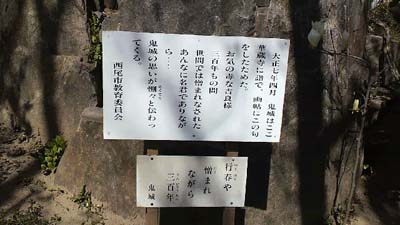 大正七年四月 鬼城はここ
華蔵寺に詣で、画帖にこの句
をしたためた。
お気の毒な吉良様
三百年もの間
世間では憎まれなされた
あんなに名君でありなが
ら……
鬼城の思いが惻々と伝わっ
てくる。
西尾市教育委員会
行春や
憎まれ
ながら
三百年
鬼城